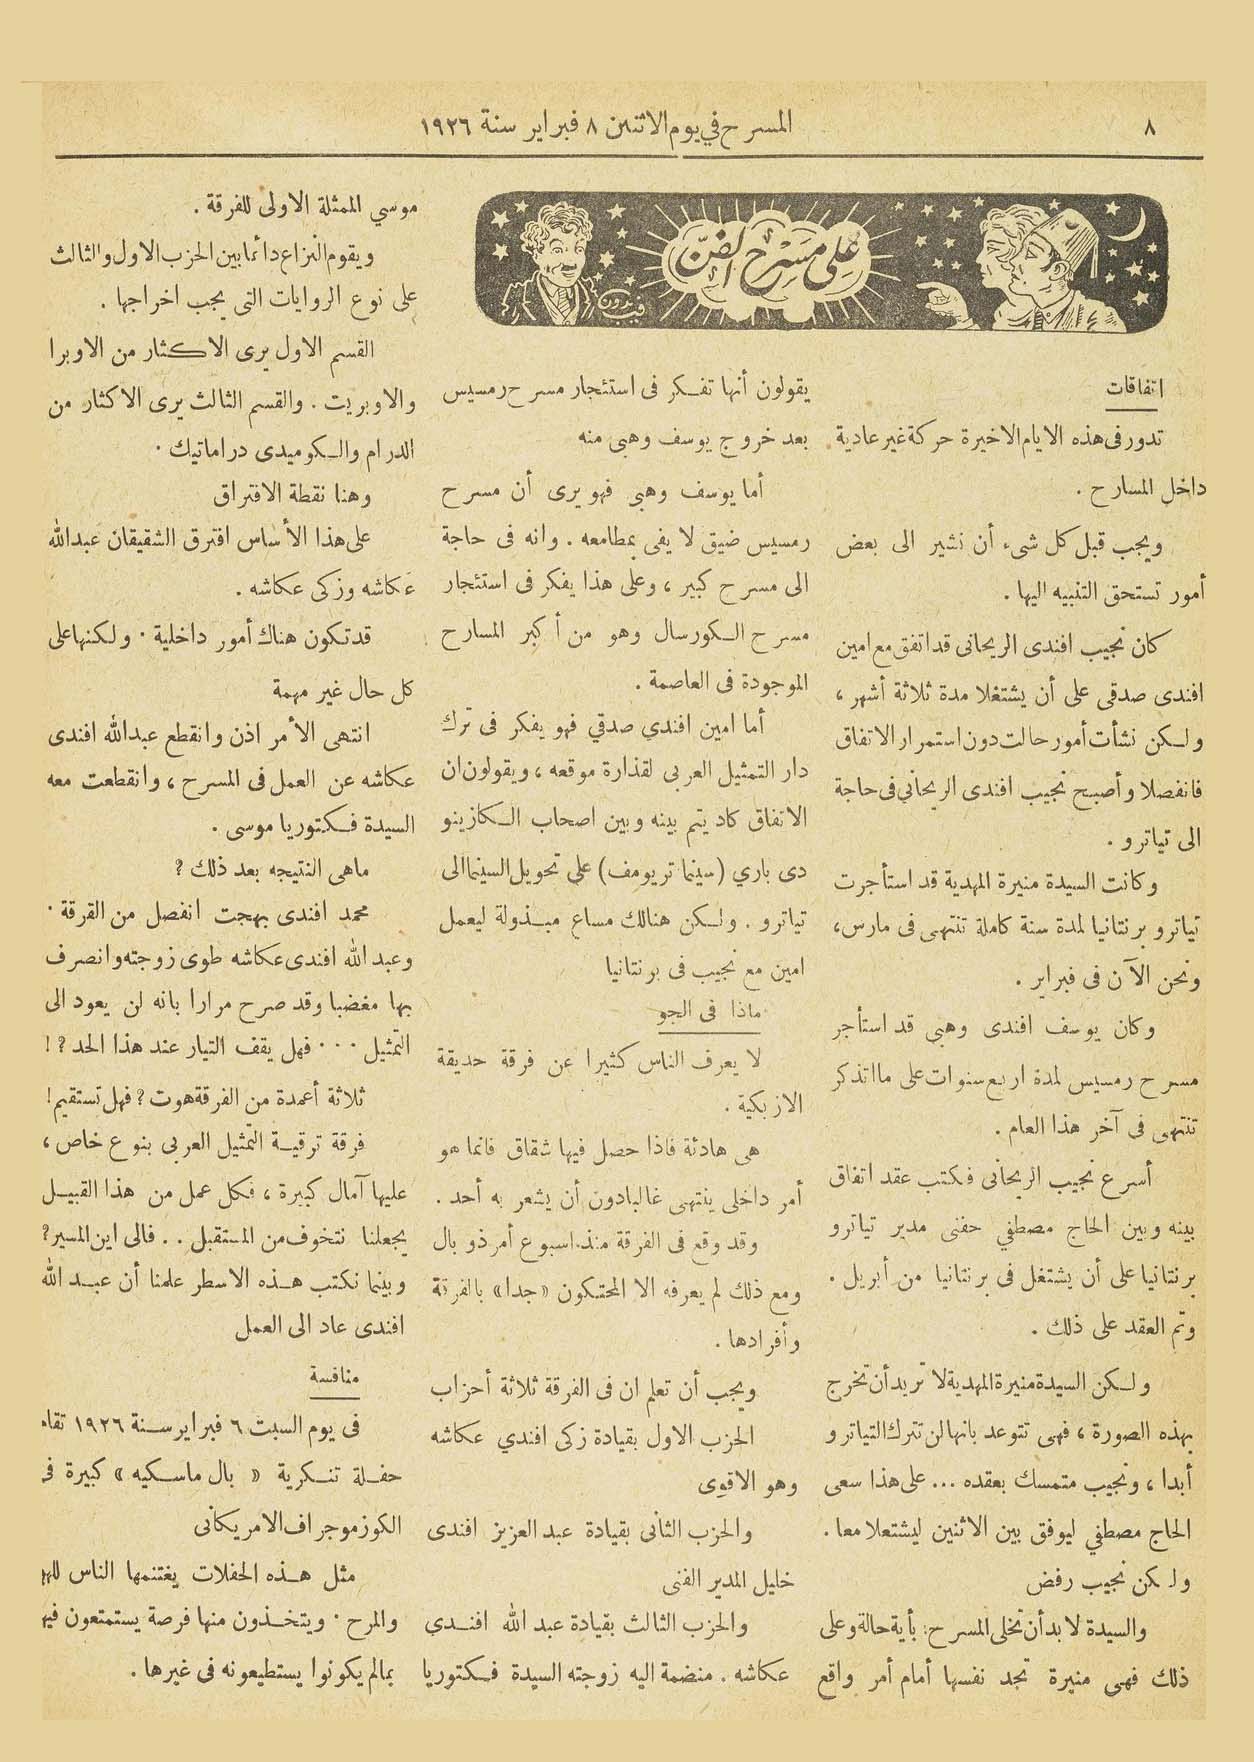 ٨
المسرح في يوم الاثنين ٨ فبراير سنة ١٩٢٦
على مسرح الفن
اتفاقات
تدور فى هذه الايام الاخيرة حركة غير عادية
داخل المسارح .
ويجب قبل كل شىء أن نشير الى بعض
أمور تستحق التنبيه اليها .
كان نجيب افندى الريحانى قد اتفق مع امين
افندى صدقى على أن يشتغلا مدة ثلاثة أشهر ،
ولكن نشأت أمور حالت دون استمرار الاتفاق
فانفصلا وأصبح نجيب افندى الريحاني فى حاجة
الى تياترو .
وكانت السيدة منيرة المهدية قد استأجرت
تياترو برنتانيا لمدة سنة كاملة تنتهى فى مارس ،
ونحن الآن فى فبراير .
وكان يوسف افندى وهبي قد استأجر
مسرح رمسيس لمدة اربع سنوات على ما اتذكر
تنتهى فى آخر هذا العام .
أسرع نجيب الريحانى فكتب عقد اتفاق
بينه وبين الحاج مصطفي حفنى مدير تياترو
برنتانيا على أن يشتغل فى برنتانيا من أبريل .
وتم العقد على ذلك .
ولكن السيدة منيرة المهدية لا تريد أن تخرج
بهذه الصورة ، فهى تتوعد بانها لن تترك التياترو
أبدا ، ونجيب متمسك بعقده ... على هذا سعى
الحاج مصطفي ليوفق بين الاثنين ليشتغلا معا .
ولكن نجيب رفض
والسيدة لا بد أن تخلى المسرح بأية حالة وعلى
ذلك فهى منيرة تجد نفسها أمام أمر واقع
يقولون أنها تفكر فى استئجار مسرح رمسيس
بعد خروج يوسف وهبى منه
أما يوسف وهبي فهو يرى أن مسرح
رمسيس ضيق لا يفى بمطامعه . وانه فى حاجة
الى مسرح كبير ، وعلى هذا يفكر فى استئجار
مسرح الكورسال وهو من أكبر المسارح
الموجودة فى العاصمة .
أما امين افندي صدقي فهو يفكر فى ترك
دار التمثيل العربى لقذارة موقعه ، ويقولون ان
الاتفاق كاد يتم بينه وبين اصحاب الكازينو
دى باري (سينما تريومف) على تحويل السينما الى
تياترو . ولكن هنالك مساع مبذولة ليعمل
امين مع نجيب فى برنتانيا
ماذا فى الجو
لا يعرف الناس كثيرا عن فرقة حديقة
الازبكية .
هى هادئة فاذا حصل فيها شقاق فانما هو
أمر داخلى ينتهى غالبا دون أن يشعر به أحد .
وقد وقع فى الفرقة منذ اسبوع أمر ذو بال
ومع ذلك لم يعرفه الا المحتكون «جدا» بالفرقة
وأفرادها .
ويجب أن تعلم ان فى الفرقة ثلاثة أحزاب
الحزب الاول بقيادة زكى افندي عكاشه
وهو الاقوى
والحزب الثانى بقيادة عبد العزيز افندى
خليل المدير الفنى
والحزب الثالث بقيادة عبد الله افندى
عكاشه . منضمة اليه زوجته السيدة فكتوريا
موسي الممثلة الاولى للفرقة .
ويقوم النزاع دائما بين الحزب الاول والثالث
على نوع الروايات التى يجب اخراجها .
القسم الاول يرى الاكثار من الاوبرا
والاوبريت . والقسم الثالث يرى الاكثار من
الدرام والكوميدى دراماتيك .
وهنا نقطة الافتراق
على هذا الأساس افترق الشقيقان عبد الله
عكاشه وزكى عكاشه .
قد تكون هناك أمور داخلية . ولكنها على
كل حال غير مهمة
انتهى الأمر اذن وانقطع عبد الله افندى
عكاشه عن العمل فى المسرح ، وانقطعت معه
السيدة فكتوريا موسى .
ماهى النتيجه بعد ذلك ؟
محمد افندى بهجت انفصل من الفرقة .
وعبد الله افندى عكاشه طوى زوجته وانصرف
بها مغضبا وقد صرح مرارا بانه لن يعود الى
التمثيل ... فهل يقف التيار عند هذا الحد ؟ !
ثلاثة أعمدة من الفرقة هوت ؟ فهل تستقيم !
فرقة ترقية التمثيل العربى بنوع خاص ،
عليها آمال كبيرة ، فكل عمل من هذا القبيل
يجعلنا نتخوف من المستقبل .. فالى اين المسير ؟
وبينما نكتب هذه الاسطر علمنا أن عبد الله
افندى عاد الى العمل
منافسة
فى يوم السبت ٦ فبراير سنة ١٩٢٦ تقام
حفلة تنكرية « بال ماسكيه » كبيرة فى
الكوزموجراف الامريكانى
مثل هذه الحفلات يغتنمها الناس للهو
والمرح . ويتخذون منها فرصة يستمتعون فيها
بمالم يكونوا يستطيعونه فى غيرها .